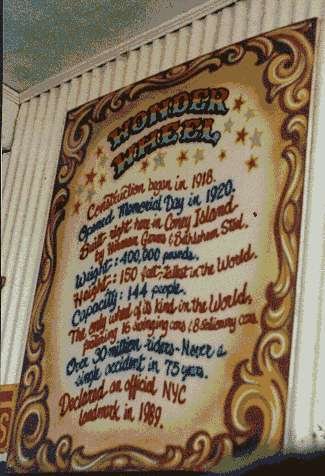 WONDER
WHEEL
Construction began in 1918.
Opened Memorial Day in 1920.
Built right here in Coney Island
by Herman Garms & Bethlehem Steel.
Weight: 400,000 pounds.
Height: 150 feet-Tallest in the World.
Capacity: 144 people.
The only wheel of its kind in the World,
featuring 16 swinging cars & 8 stationary cars.
Over 30 million riders-Never a
single accident in 75 years.
Declared an official NYC
landmark in 1989.
S